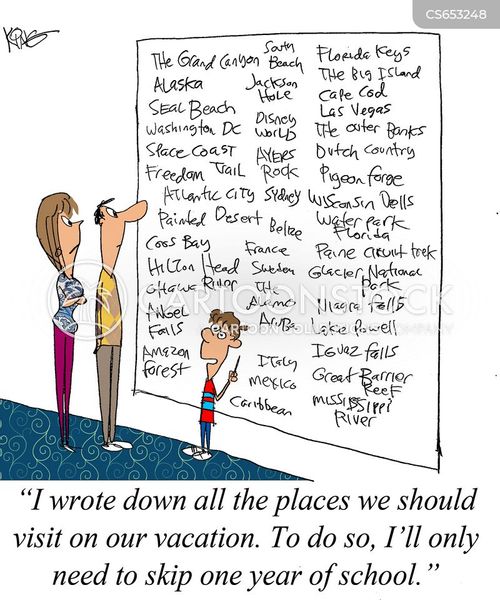 CS653248
KING
The Grand Canyon
Alaska
Seal Beach
Washington DC
Space Coast
Freedom Trail
Atlantic City
Painted Desert
Coos Bay
Hilton Head
Ottawa River
Angel
Falls
Amazon
Forest
South
Beach
Jackson
Hole
Disney
World
Ayers
Rock
Sydney
Belize
France
Sweden
The
Alamo
Aruba
Italy
Mexico
Caribbean
Florida Keys
The Big Island
Cape Cod
Las Vegas
The Outer Banks
Dutch Country
Pigeon Forge
Wisconsin Dells
Water Park
Florida
Paine Circuit trek
Glacier National
Park
Niagra Falls
Lake Powell
Iguaz Falls
Great Barrier
Reef
Mississippi
River
CARTOONSTOCK
“I wrote down all the places we should
visit on our vacation. To do so, I’ll only
need to skip one year of school.”